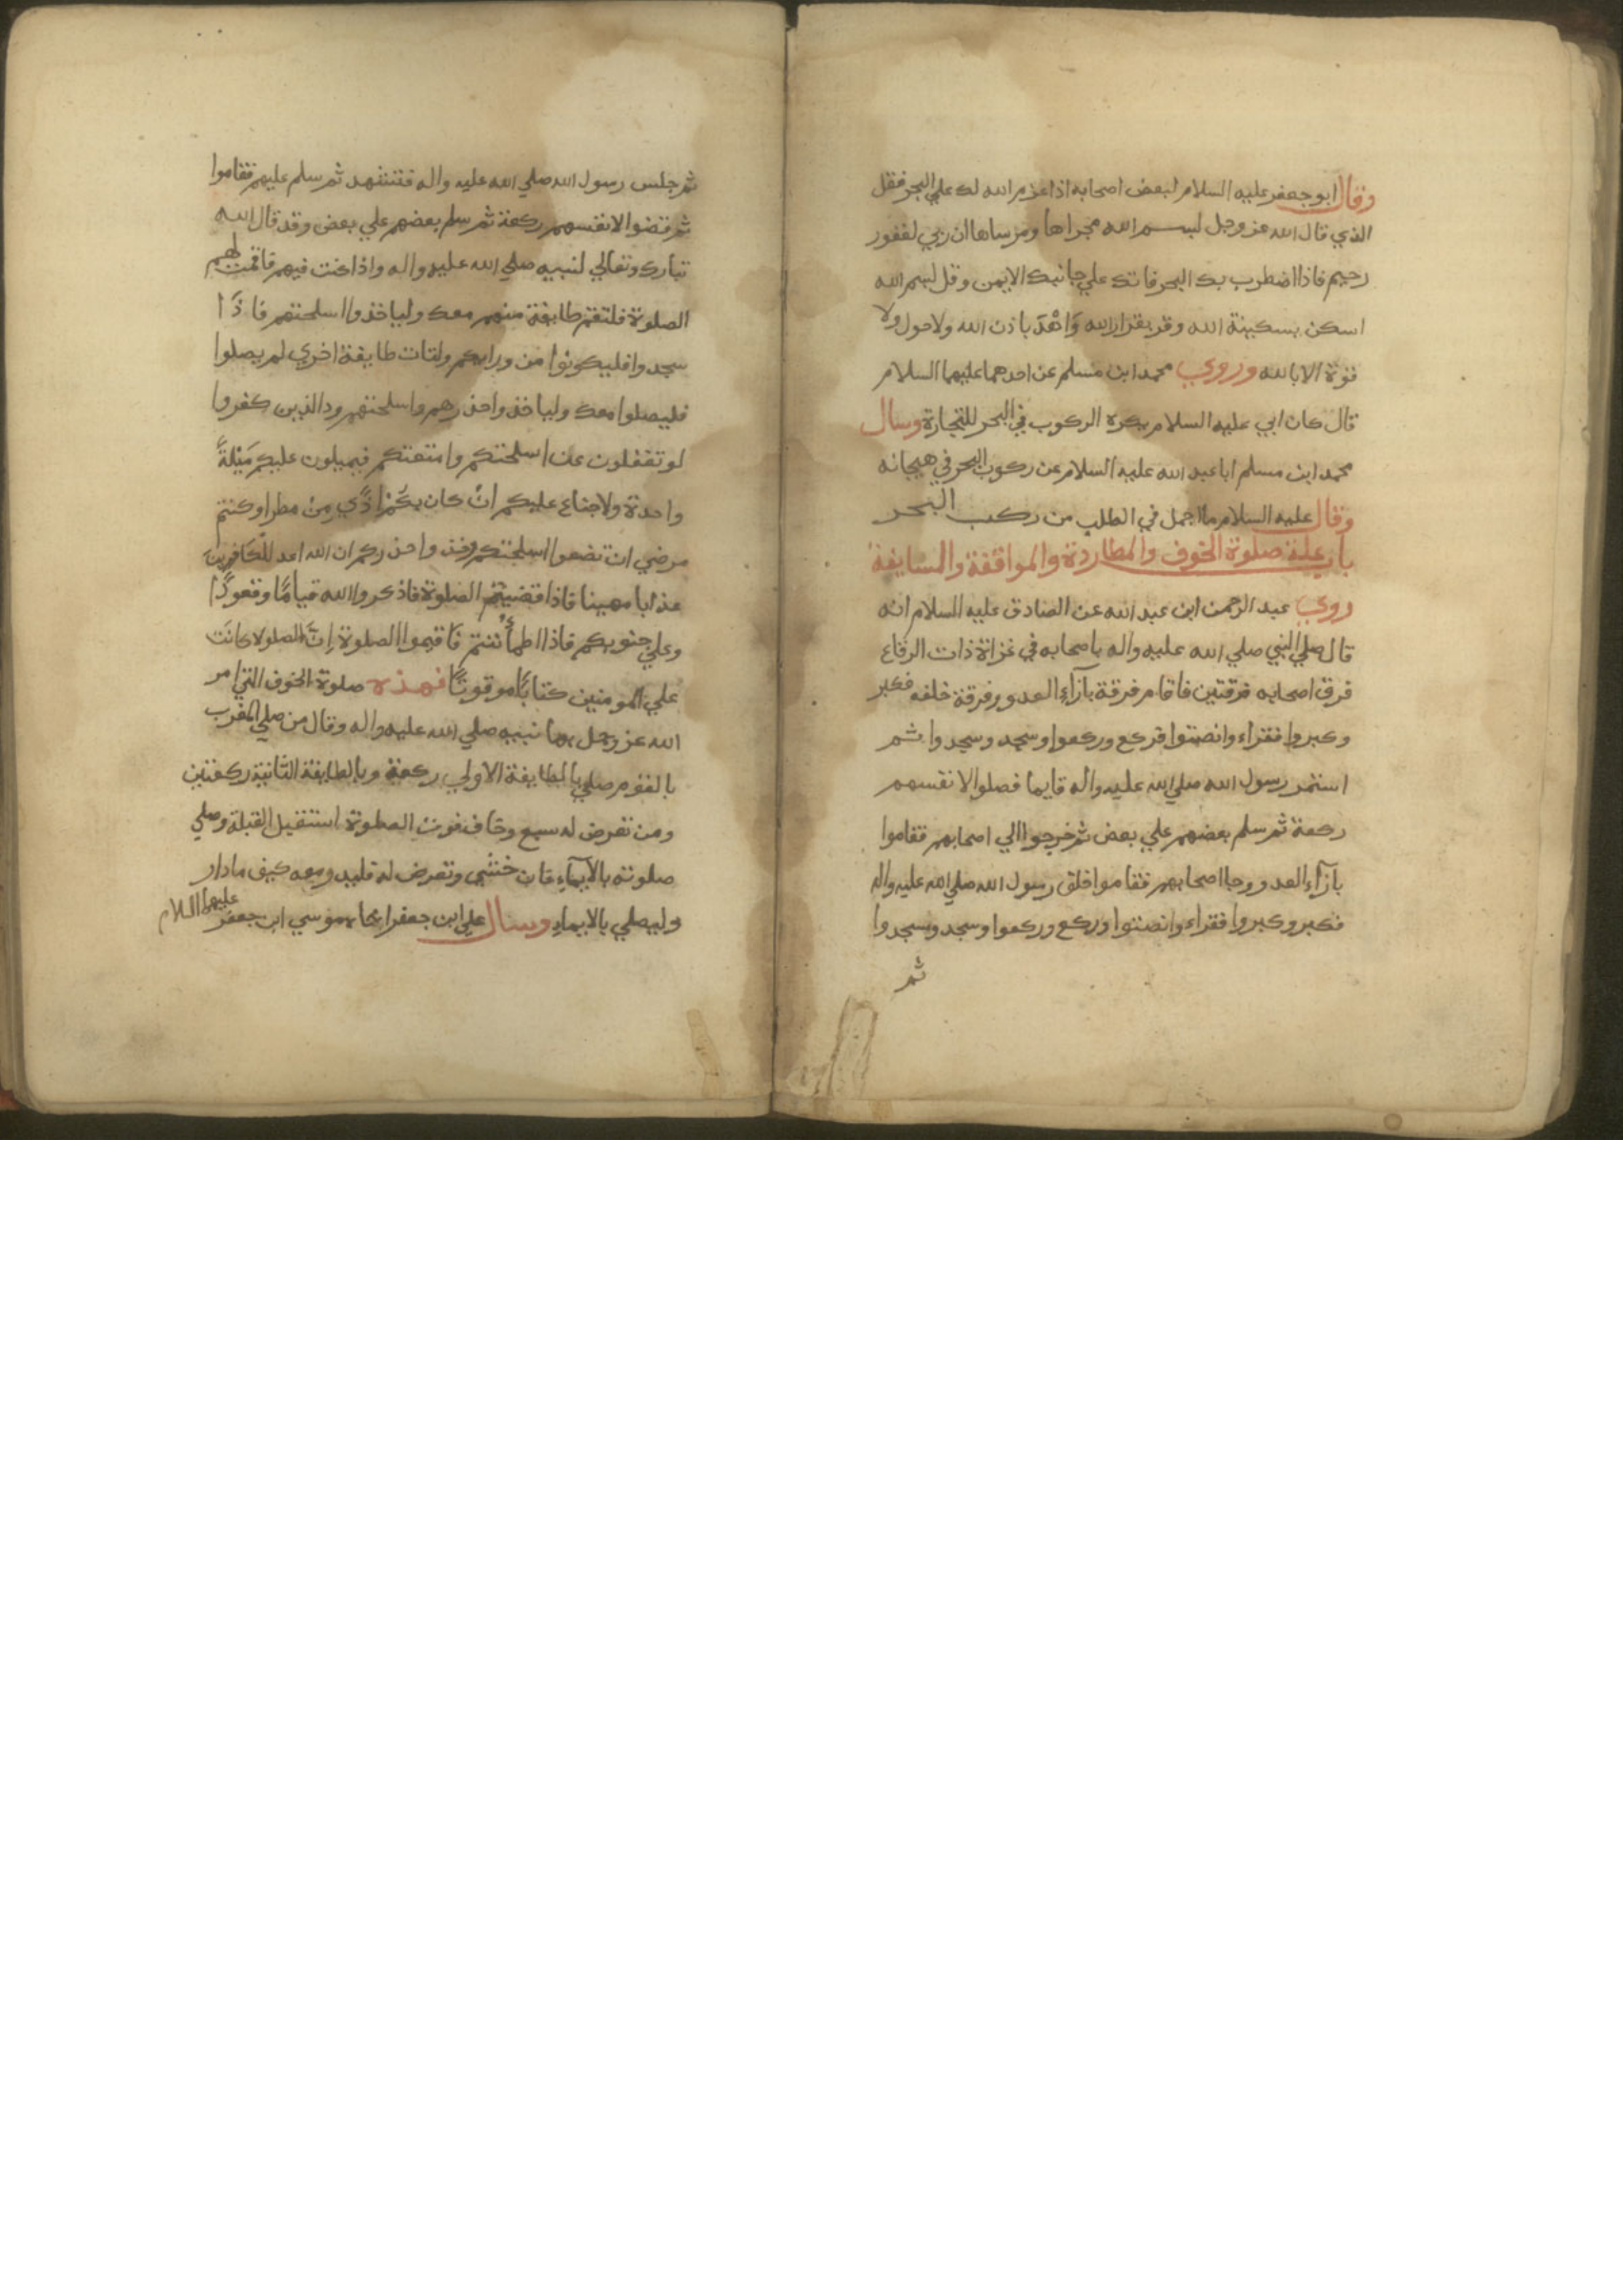 وقال ابو جعفر عليه السلام لبعض اصحابه اذا عزم الله لك علي البحر فقل
الذي قال الله عز وجل بسم الله مجراها ومرساها ان ربي لغفور
رحيم فاذا اضطرب بك البحر فاتك علي جانبك الايمن وقل بسم الله
اسكن بسكينة الله وقر بقرار الله واهْدَ باذن الله ولا حول ولا
قوة الا بالله وروي محمد ابن مسلم عن احدهما عليهما السلام
قال كان ابي عليه السلام يكره الركوب في البحر للتجارة وسال
محمد ابن مسلم ابا عبد الله عليه السلام عن ركوب البحر في هيجانه
وقال عليه السلام ما اجمل في الطلب من ركب البحر
باب علة صلوة الخوف والمطاردة والمواقفة والمسايفة
روي عبد الرحمن ابن عبد الله عن الصادق عليه السلام انه
قال صلي النبي صلي الله عليه واله باصحابه في غزاة ذات الرقاع
فرق اصحابه فرقتين فاقام فرقة بازآء العدو وفرقة خلفه فكبر
وكبروا فقراء وانصتوا فركع وركعوا وسجد وسجدوا ثم
استمر رسول الله صلي الله عليه واله قايما فصلوا لانفسهم
ركعة ثم سلم بعضهم علي بعض ثم خرجوا الي اصحابهم فقاموا
بازآء العدو وجا اصحابهم فقاموا خلق رسول الله صلي الله عليه واله
فكبر وكبروا فقراء وانصتوا وركع وركعوا وسجد وسجدوا
ثم
ثم جلس رسول الله صلي الله عليه واله فتشهد ثم سلم عليهم فقاموا
ثم قضوا لانفسهم ركعة ثم سلم بعضهم علي بعض وقد قال الله
تبارك وتعالي لنبيه صلي الله عليه واله واذا كنت فيهم فاقمت لهم
الصلوة فلتقم طايفة منهم معك ولياخذوا اسلحتهم فاذَا
سجدوا فليكونوا من ورايكم ولتات طايفة اخري لم يصلوا
فليصلوا معك ولياخذوا حذرهم واسلحتهم ود الذين كفروا
لو تغفلون عن اسلحتكم وامتعتكم فيميلون عليكم مَيْلةً
واحدة ولا جناع عليكم انْ كان بكُمْ اذًي مِنْ مطر او كنتم
مرضي ان تضعوا اسلحتكم وخذوا حذركم ان الله اعد للْكَافرينَ
عذابا مهينا فاذا قضيتُمُ الصلوة فاذكروا الله قيامًا وقعودًا
وعلي جنوبكم فاذا اطمأْننتم فَاقيموا الصلوة اِنَّ الصلوة كانَت
علي المومنين كتابًا موقوتًا فهذه صلوة الخوف التي امر
الله عز وجل بها نبيه صلي الله عليه واله وقال من صلي المغرب
بالقوم صلي بالطايفة الاولي ركعة وبالطايفة الثانية ركعتين
ومن تعرض له سبع وخاف فوت الصلوة استقبل القبلة وصلي
صلوته بالايمآءِ فان خشي وتعرض له فليدر معه كيف ما دار
وليصلي بالايماءِ وسال علي ابن جعفر اخاه موسي ابن جعفر عليهما السلام